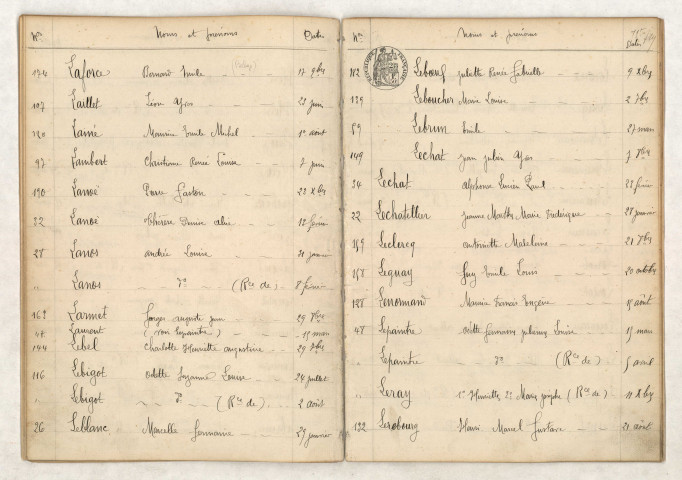 Nos Noms et prénoms Dates
174 Laforce Bernard Emile 17 9bre
107 Laillet Léon 23 juin
120 Lainé Maurice Emile Michel 1er août
97 Lambert Christiane Renée Louise 7 juin
190 Lanoë Pierre Gaston 23 Xbre
32 Lanoë Thérèse Denise 12 février
28 Lanos Andrée Louise 31 janvier
" Lanos do (Rce de) 8 février
162 Larmet Georges Auguste 29 8bre
47 Laurent (non légitimée) 15 mars
144 Lebel Charlotte Henriette Augustine 29 7bre
116 Lebigot Odette Suzanne Louise 24 juillet
" Lebigot do (Rce de) 2 août
26 Leblanc Marcelle Germaine 29 janvier
Nos Noms et prénoms Dates
RÉPUBLIQUE FRANÇAISE
182 Leboeuf Juliette Renée Gabrielle 9 Xbre
129 Leboucher Marie Louise 2 7bre
59 Lebrun Emile 27 mars
149 Lechat Jean Julien 7 8bre
34 Lechat Alphonse Lucien Paul 23 février
22 Lechatellier Jeanne Marthe Marie Frédérique 28 janvier
159 Leclercq Antoinette Madeleine 21 8bre
158 Leguay Guy Emile Louis 20 octobre
128 Lenormand Maurice Francis Eugène 15 août
48 Lepaintre Odette Germaine Julienne Louise 15 mars
Lepaintre do (Rce de) 5 avril
" Leray 1o Henriette, 2o Marie Josèphe (Rce de) 11 Xbre
122 Lerebourg Henri Marcel Gustave 21 août